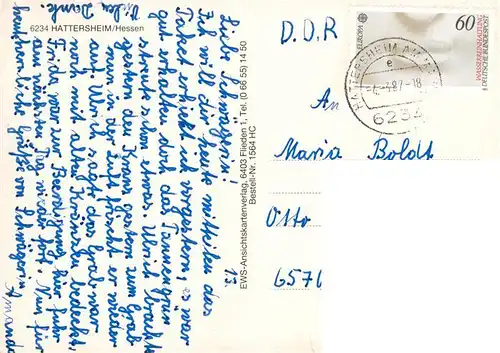 6234 HATTERSHEIM/Hessen
Liebe Schwägerin!
Ich will Dir heute mitteilen das
Paket erhielt ich vorgestern, es war
gut erhalten doch das Tannengrün
streute schon etwas. Ulrich brachte
den Kranz gestern zum Grab
nun in der Luft forscht er wieder
aus. Ulrich sagte das Grab war
noch mit alten Kränzen bedeckt.
Frida war zur Beerdigung, sie fuhr
am nächsten Tag wieder fort. Nun für
heute herzliche Grüße von Schwägerin Amanda
Vielen Dank.
EWS-Ansichtskartenverlag, 6403 Flieden 1, Tel. (0 66 55) 14 50
Bestell-Nr. 1564 HC
D.D.R
EUROPA
60
WASSERREINHALTUNG
DEUTSCHE BUNDESPOST
HATTERSHEIM AM MAIN
e
87-18
6234
An
Maria Boldt
Otto
657